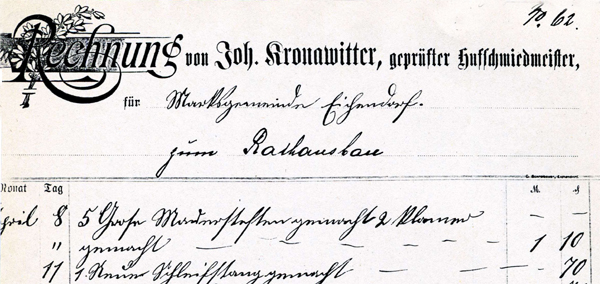 No. 62.
Rechnung von Joh. Kronawitter, geprüfter Hufschmiedmeister,
für Marktgemeinde Eichendorf.
zum Rathausbau
Monat Tag M. ₰
April 8 5 Große Mauerstefften gemacht 2 Klamer — —
" gemacht — — — — — — — 1 10
11 1 Neuer Schleifstang gemacht — — — 70